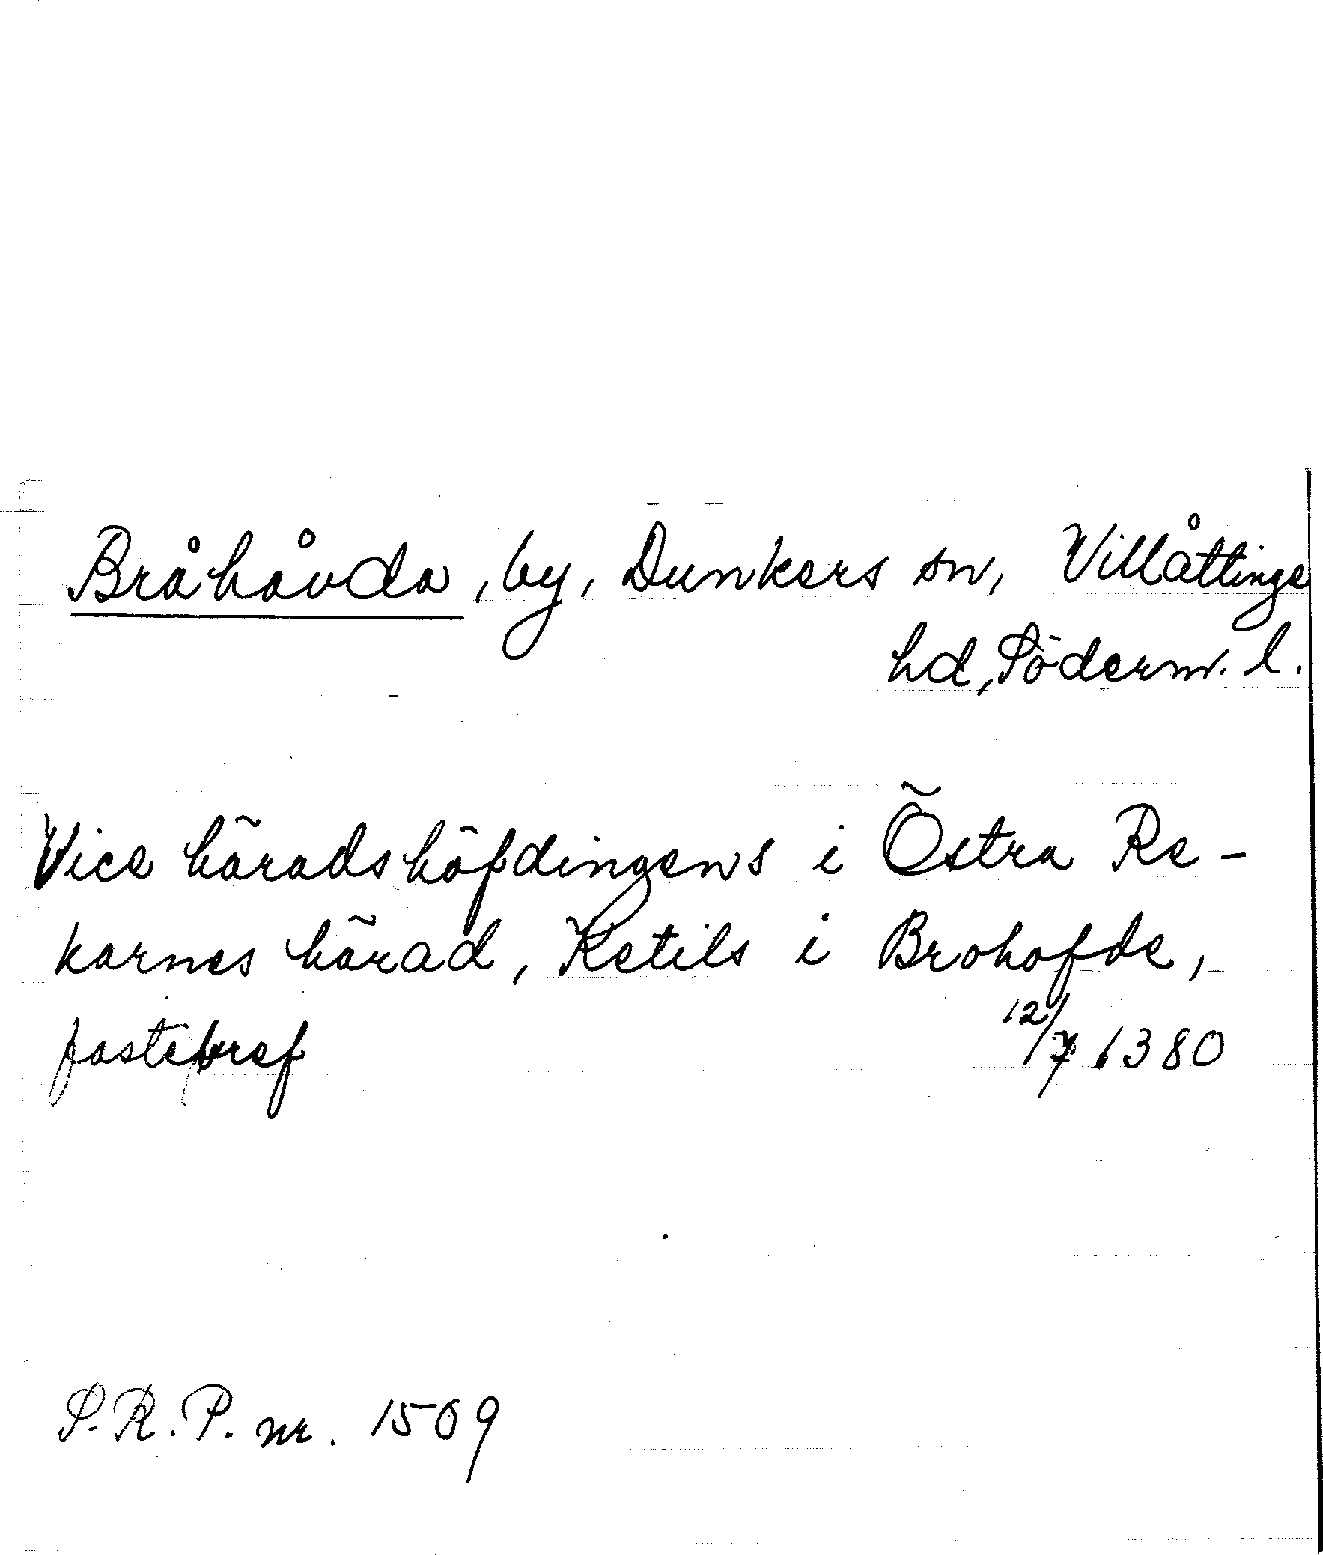 Bråhåvda, by, Dunkers sn, Villåttinge
hd, Söderm. l.
Vice häradshöfdingens i Östra Re-
karnes härad, Ketils i Brohofde,
fastebref 12/7 1380
S.R.P. nr. 1509